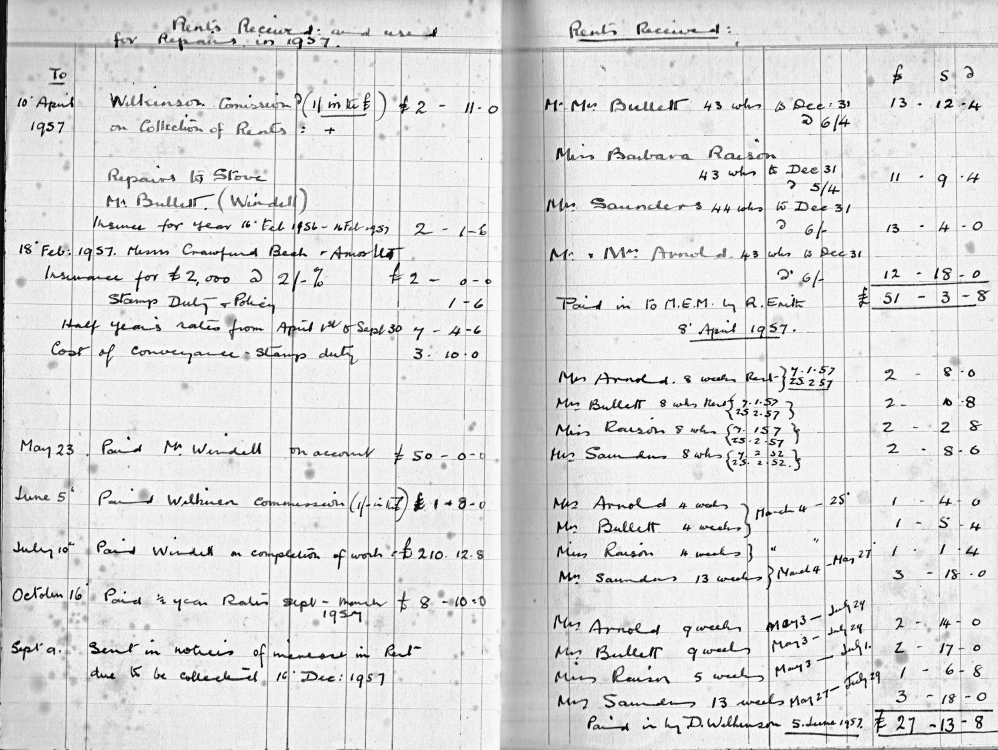 Rents Received: and used
for Repairs in 1957.
To
10 April Wilkinson Comission (1/ in the £) £ 2 - 11 - 0
1957 on Collection of Rents: +
Repairs to Stove
Mr Bullett. (Windell)
Insurance for year 16 Feb 1956 - 16 Feb. 1957 2 - 1-6
18 Feb: 1957. Messrs Crawfurd Bech +
Insurance for £2,000 @ 2/- % £ 2 - 0-0
Stamp Duty + Policy 1 - 6
Half year's rates from April 1st to Sept 30 7 - 4-6
Cost of conveyance - stamp duty 3. 10.0
May 23 Paid Mr Windell on account £ 50 - 0-0
June 5 Paid Wilkinson commission (1/- in £) £ 1 - 8-0
July 10 Paid Windell on completion of work £ 210. 12. 8
October 16 Paid ½ year Rates Sept - March £ 8 - 10-0
1957
Sept 9. Sent in notices of increase in Rent
due to be collected 16 Dec: 1957
Rents Received:
£ S D
Mr. Mrs Bullett 43 wks to Dec: 31 13 - 12 - 4
@ 6/4
Miss Barbara Raison
43 wks to Dec 31 11 - 9 . 4
@ 5/4
Mrs Saunders 44 wks to Dec 31
@ 6/- 13 - 4 - 0
Mr. + Mrs Arnold 43 wks to Dec 31
@ 6/- 12 - 18 - 0
Paid in to M.E.M. by R. £ 51 - 3 - 8
8 April 1957.
Mrs Arnold. 8 weeks Rent {7.1.57 25.2.57 2 - 8 - 0
Mrs Bullett 8 wks Rent {7.1.57 25.2.57} 2 - 10 . 8
Miss Raison 8 wks {7.1.57 25.2.57} 2 - 2 8
Mrs Saunders 8 wks {7.2.52 25.2.52.} 2 - 8 - 6
Mrs Arnold 4 weeks } March 4 - 25 1 - 4 - 0
Mrs Bullett 4 weeks 1 - 5 - 4
Miss Raison 4 weeks } " " 1 - 1 - 4
Mrs Saunders 13 weeks } March 4 - May 27 3 - 18 - 0
Mrs Arnold 9 weeks May 3 - July 29 2 - 14 - 0
Mrs Bullett 9 weeks May 3 - July 29 2 - 17 - 0
Miss Raison 5 weeks May 3 - July 1. 1 - 6 - 8
Mrs Saunders 13 weeks May 27 - July 29 3 - 18 - 0
Paid in by D. Wilkinson 5. June 1957. £ 27 - 13 - 8